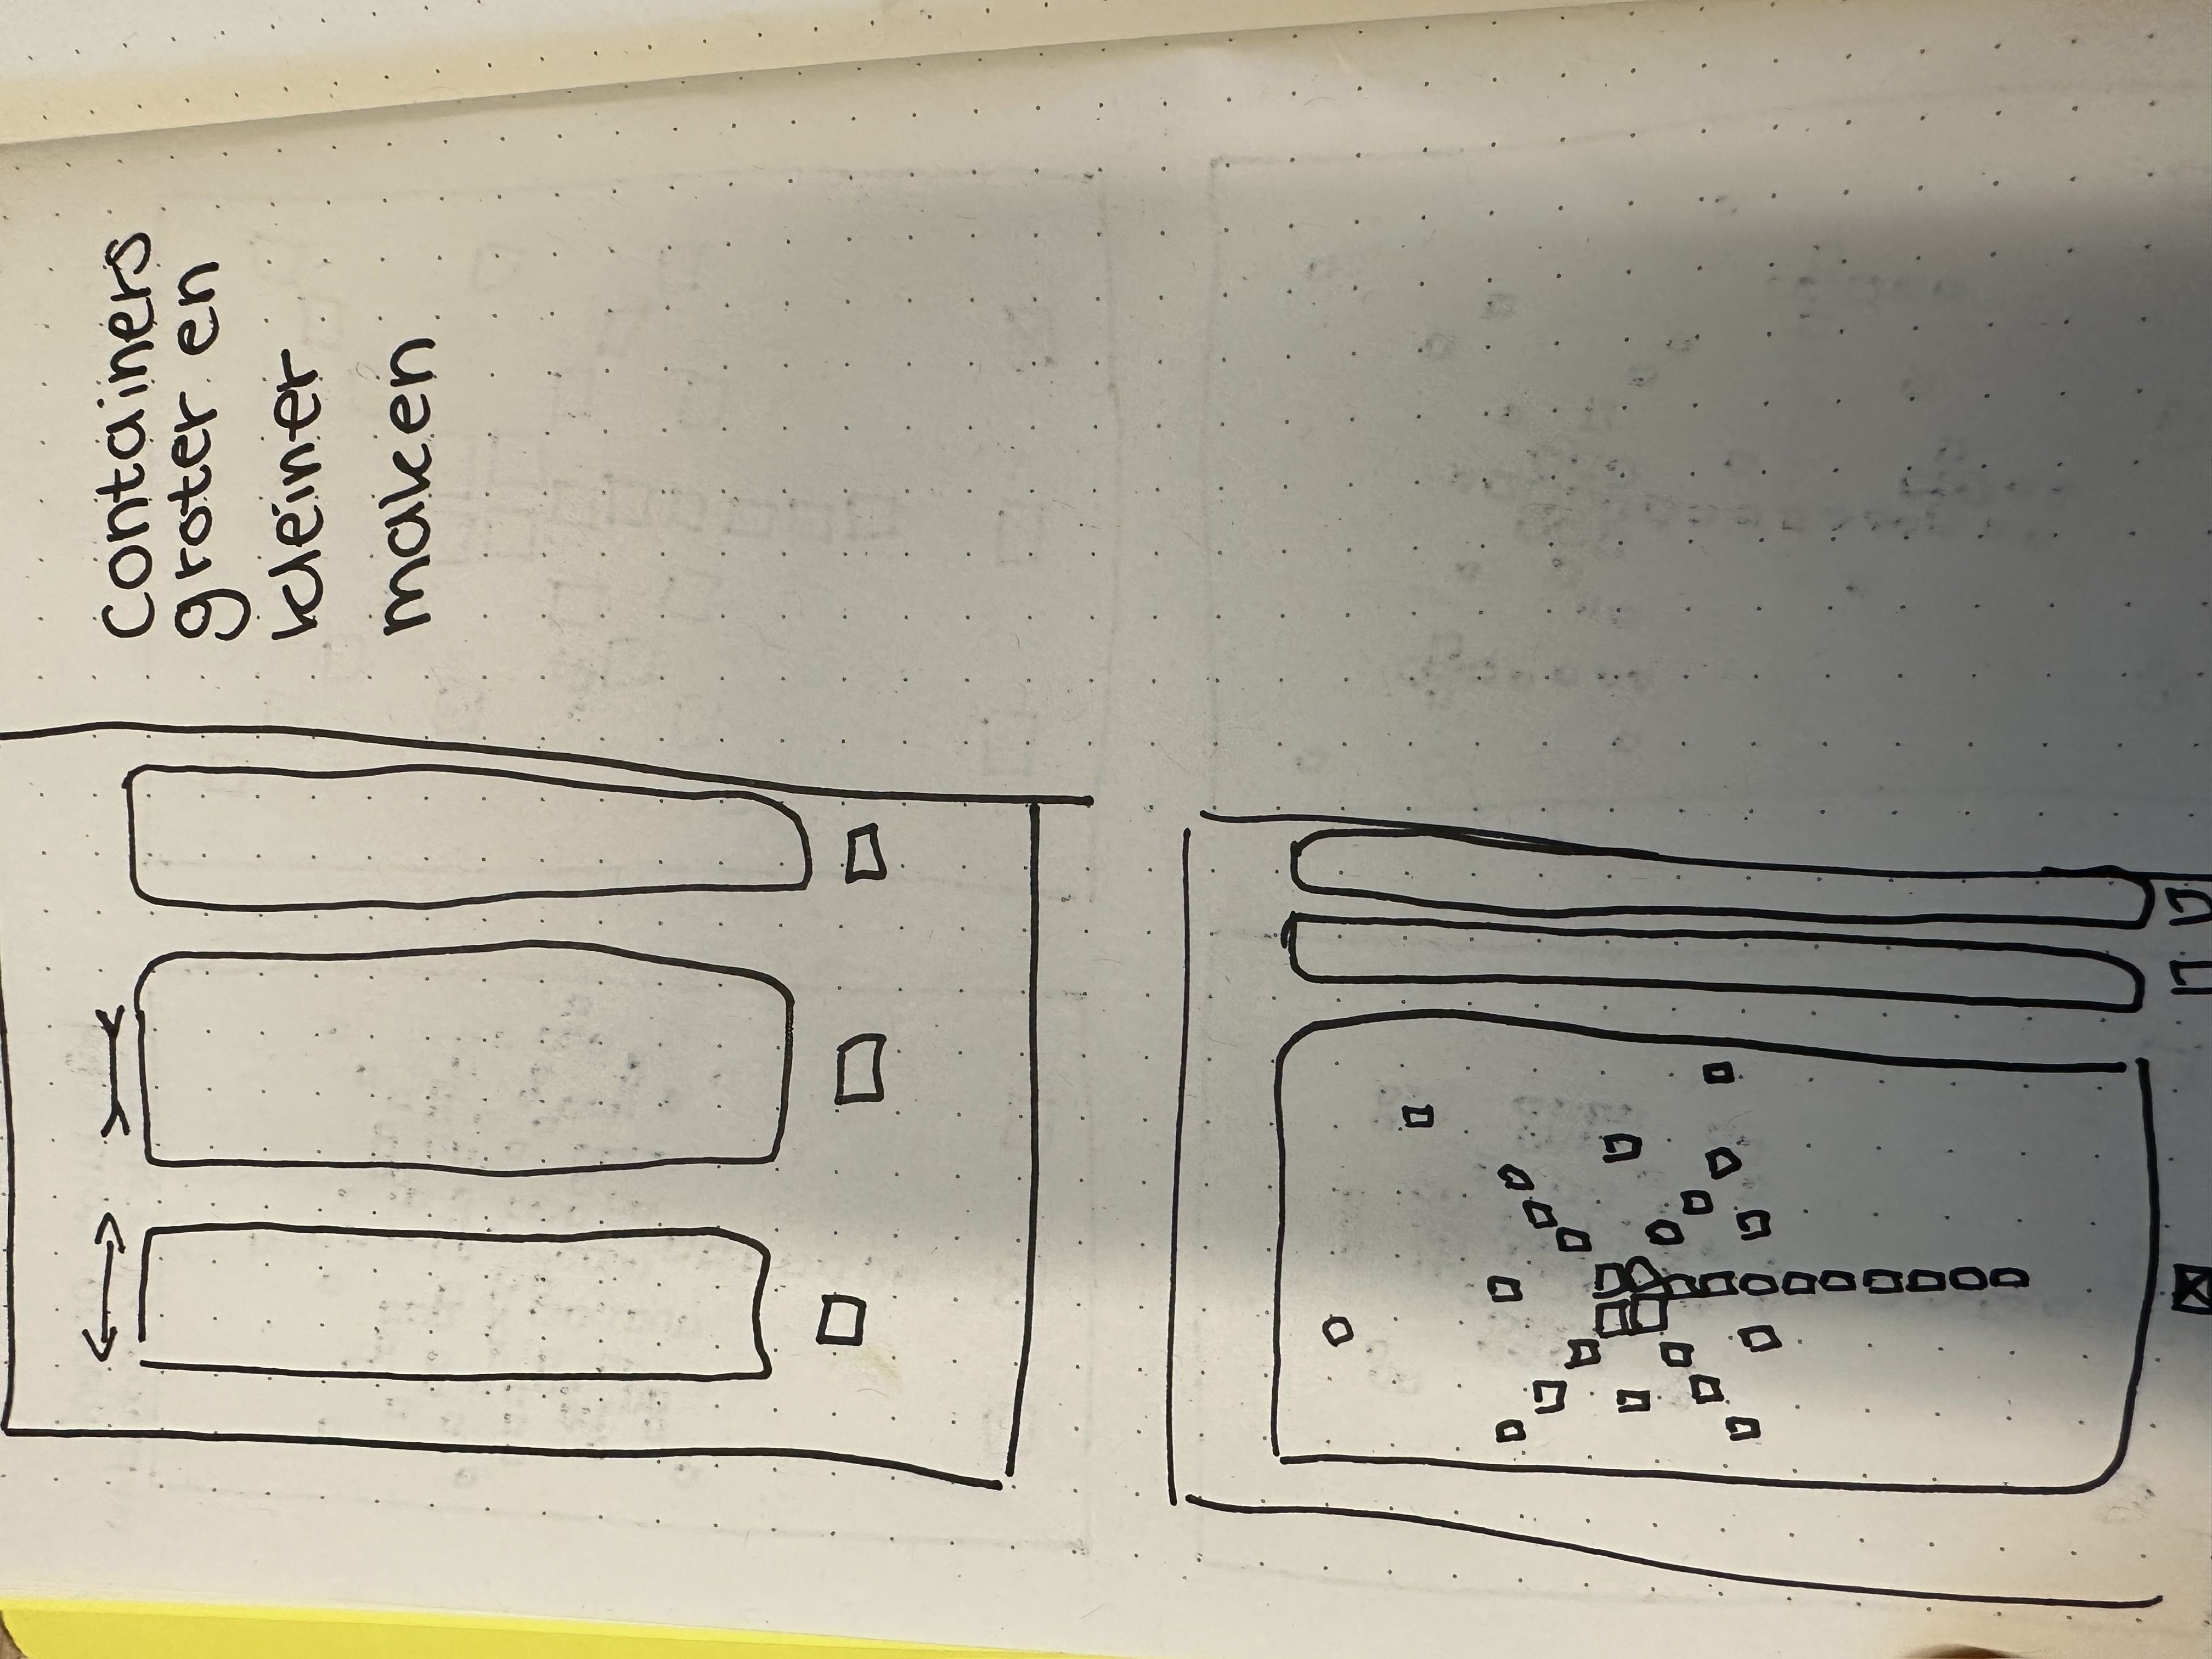 containers
groter en
kleiner
maken